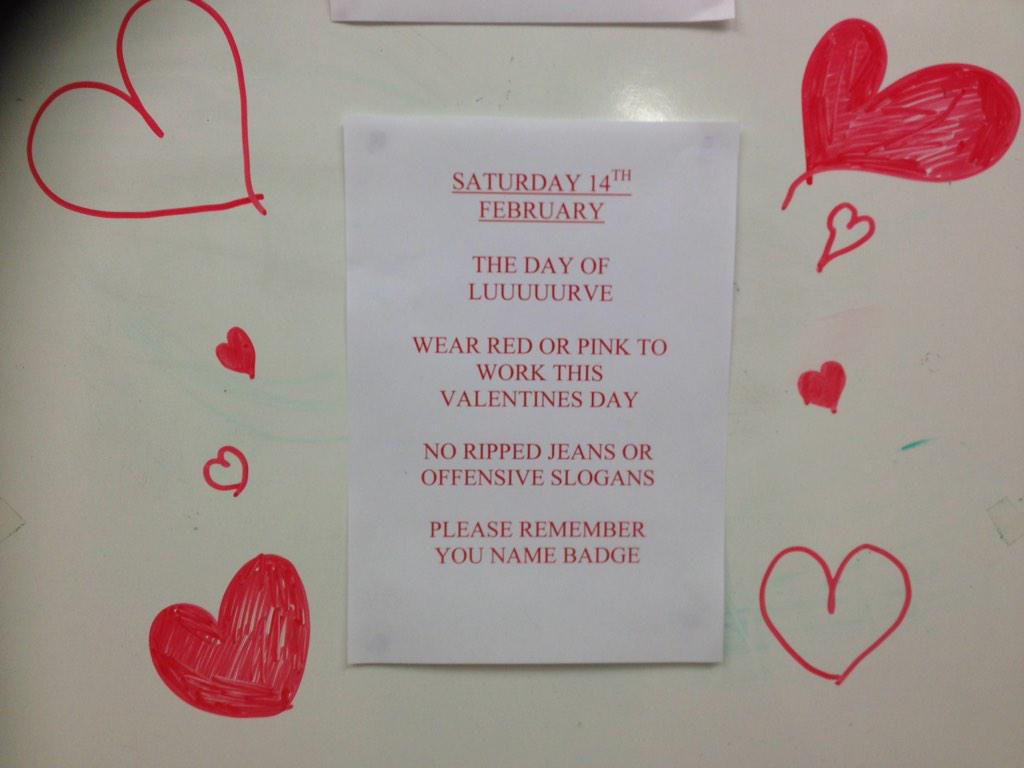 SATURDAY 14TH
FEBRUARY
THE DAY OF
LUUUUURVE
WEAR RED OR PINK TO
WORK THIS
VALENTINES DAY
NO RIPPED JEANS OR
OFFENSIVE SLOGANS
PLEASE REMEMBER
YOU NAME BADGE